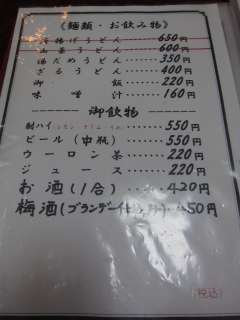 《麺類・お飲み物》
うどん・・・・650円
山菜うどん・・・・・600円
湯だめうどん・・・・350円
ざるうどん・・・・・400円
御飯・・・・・220円
味噌汁・・・・・160円
御飲物
酎ハイ・・・・・550円
ビール(中瓶)・・・・・550円
ウーロン茶・・・・・220円
ジュース・・・・・220円
お酒(1合)・・・・420円
梅酒(ブランデー 450円
税込